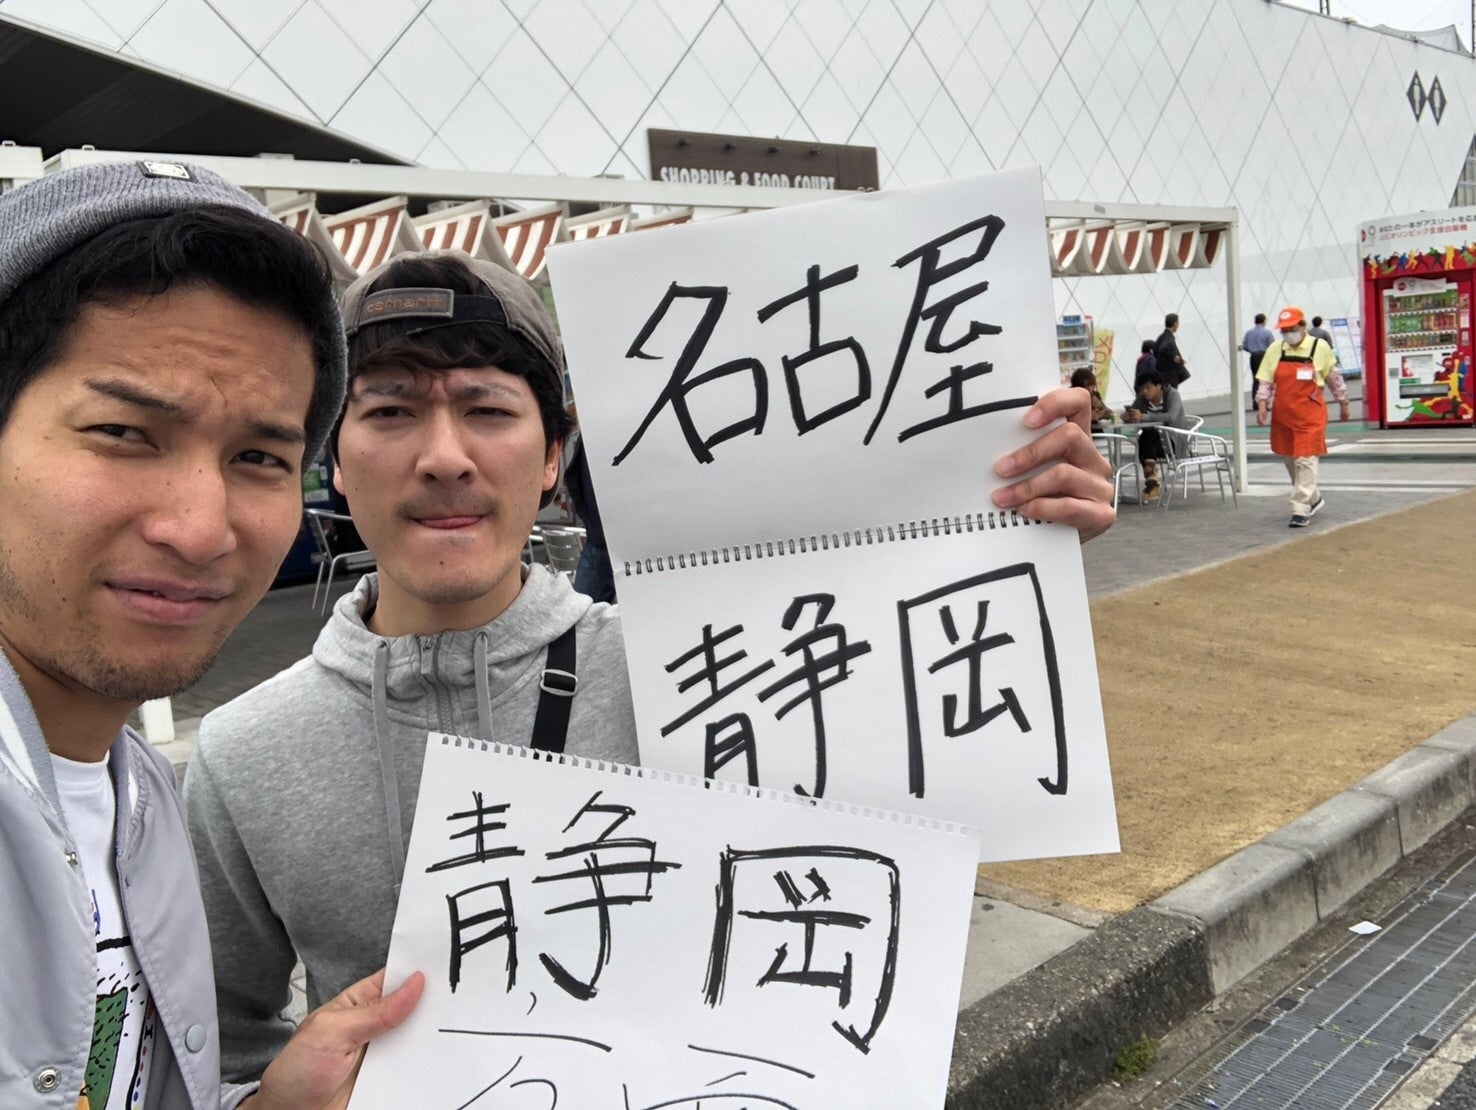 SHOPPING & FOOD COURT
carhartt
名古屋
静岡
静岡